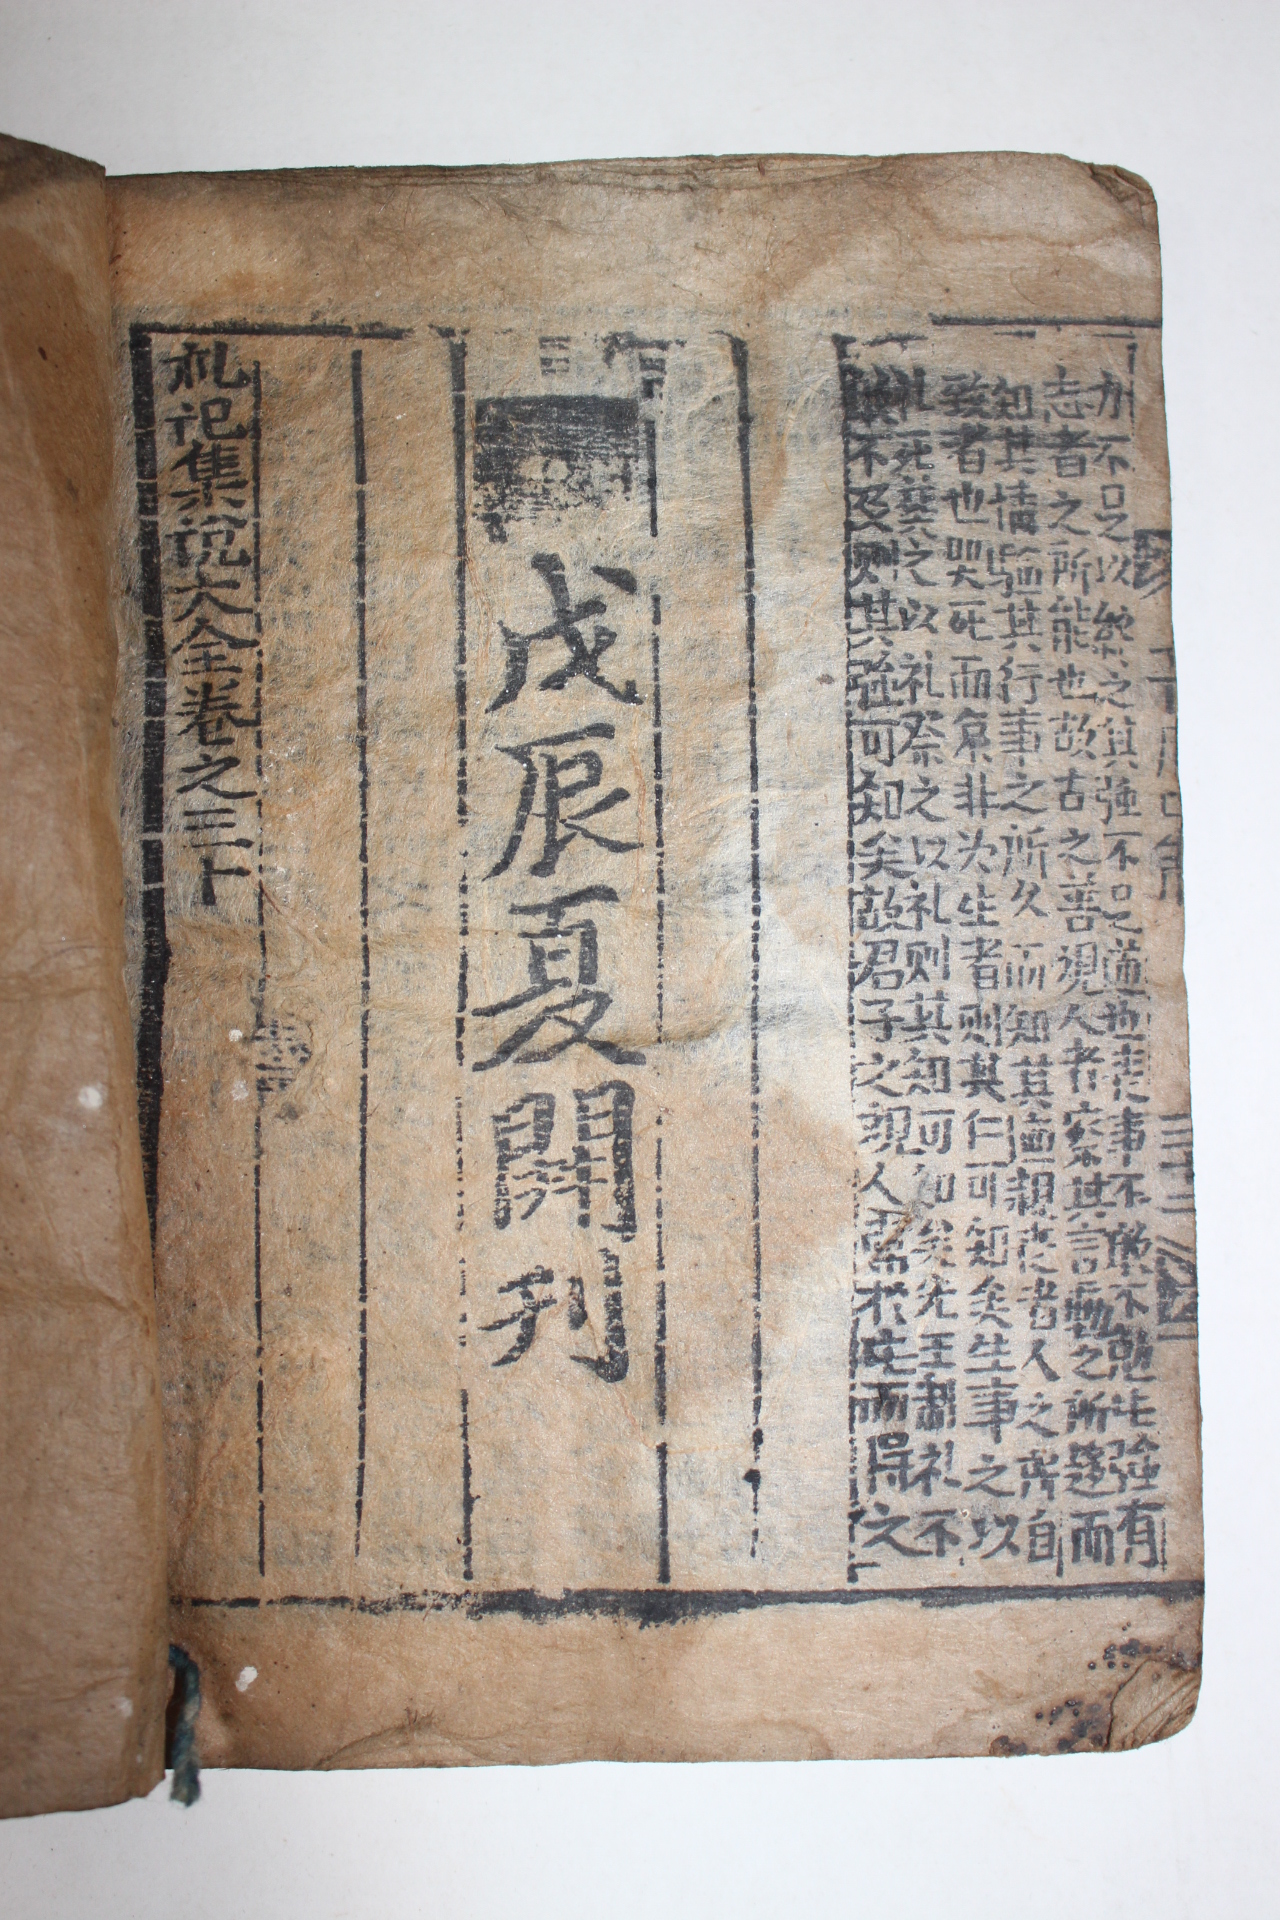 力不足以㒹之其強不足遵也喪事不敢不勉毛強有
志者之所能也故古之善視人者察其言動之所趨而
知其情驗其行事之所久而知其道親喪者人之所自
致者也哭死而哀非为生者則其仁可知矣生事之以
礼死葬之以礼祭之以礼则其知可知矣先王制礼不
不及则其強可知矣故君子之観人常於此而得之
戊辰夏開刊
礼記集説大全卷之三十